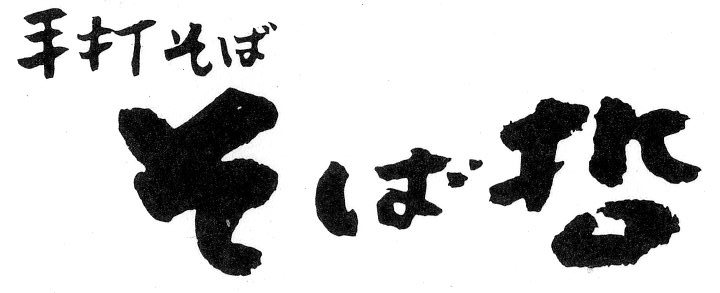 手打そば
そば哲